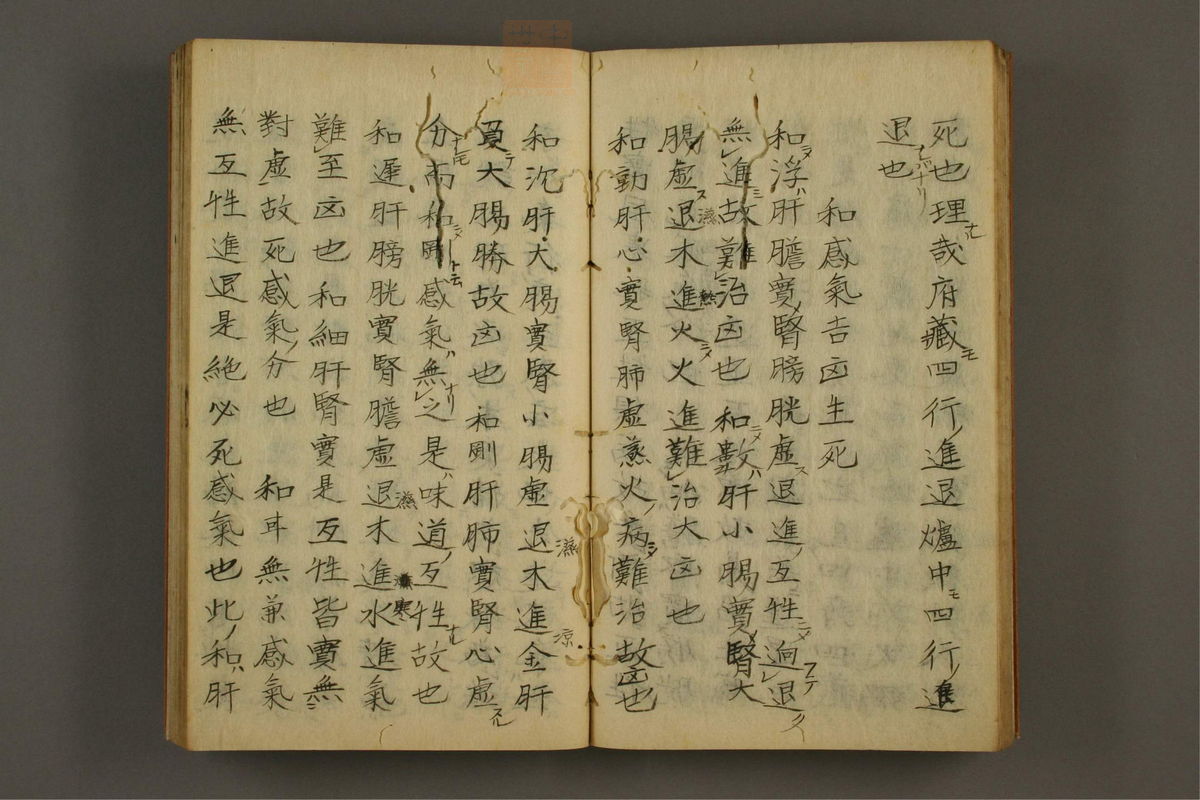 死也理哉府藏四行進退爐中四行進
退也
和感氣吉凶生死
和浮肝膽實腎膀胱虚退進互性逈退
無進故難治凶也 和數肝小腸實腎大
腸虚退木進火火進難治大凶也
和動肝心實腎肺虚蒸火病難治故凶也
和沉肝大腸實腎小腸虚退木進金肝
大腸勝故凶也 和剛肝肺實腎心虚
分而和 感氣無之是味道互性故也
和遲肝膀胱實腎膽虚退木進水進氣
難至凶也 和細肝腎實是互性皆實無
對虚故死感氣分也 和 無兼感氣
無互性進退是絶必死感氣也此和肝